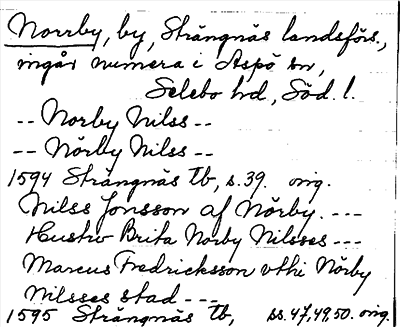 Norrby, by, Strängnäs landsförs.,
ingår numera i Aspö sn,
Selebo hd, Söd. l.
-- Norby Nilss --
-- Nörby Nilss --
1594 Strängnäs Tb, s. 39. orig.
Nilss Jonsson af Nörby. ---
Hustrv Brita Nörby Nilsses ---
Marcus Fredricksson vthi Nörby
Nilsses stad ---
1595 Strängnäs Tb, ss. 47,49,50. orig.